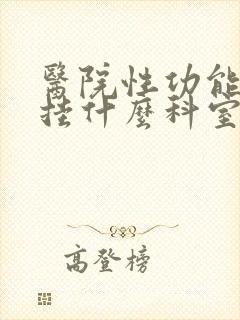 醫院性功能
挂什麼科室
高登榜